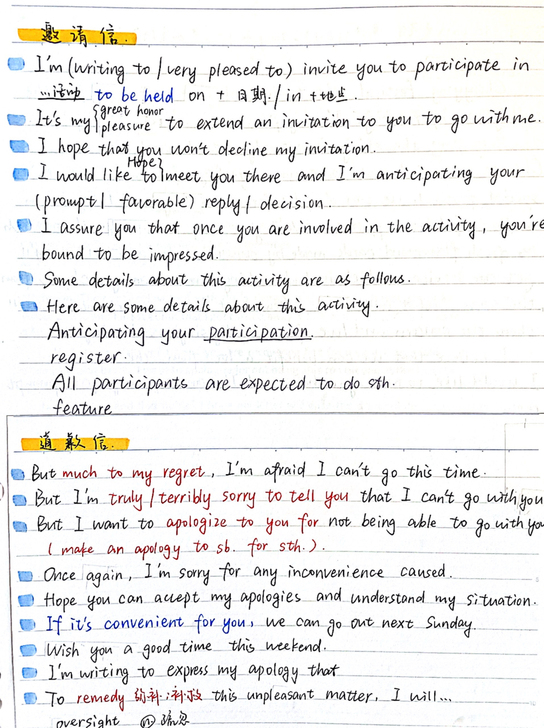 邀请信.
I'm (writing to / very pleased to) invite you to participate in
...活动 to be held on + 日期. / in + 地点.
It's my { great honor
pleasure to extend an invitation to you to go with me.
I hope that you won't decline my invitation.
Hope }
I would like to meet you there and I'm anticipating your
(prompt / favorable) reply / decision.
I assure you that once you are involved in the activity, you're
bound to be impressed.
Some details about this activity are as follows.
Here are some details about this activity.
Anticipating your participation.
register.
All participants are expected to do sth.
feature
道歉信.
But much to my regret, I'm afraid I can't go this time.
But I'm truly / terribly sorry to tell you that I can't go with you
But I want to apologize to you for not being able to go with you
( make an apology to sb. for sth. ).
Once again, I'm sorry for any inconvenience caused.
Hope you can accept my apologies and understand my situation.
If it's convenient for you, we can go out next Sunday.
Wish you a good time this weekend.
I'm writing to express my apology that
To remedy 补救 this unpleasant matter, I will...
oversight (n) 疏忽